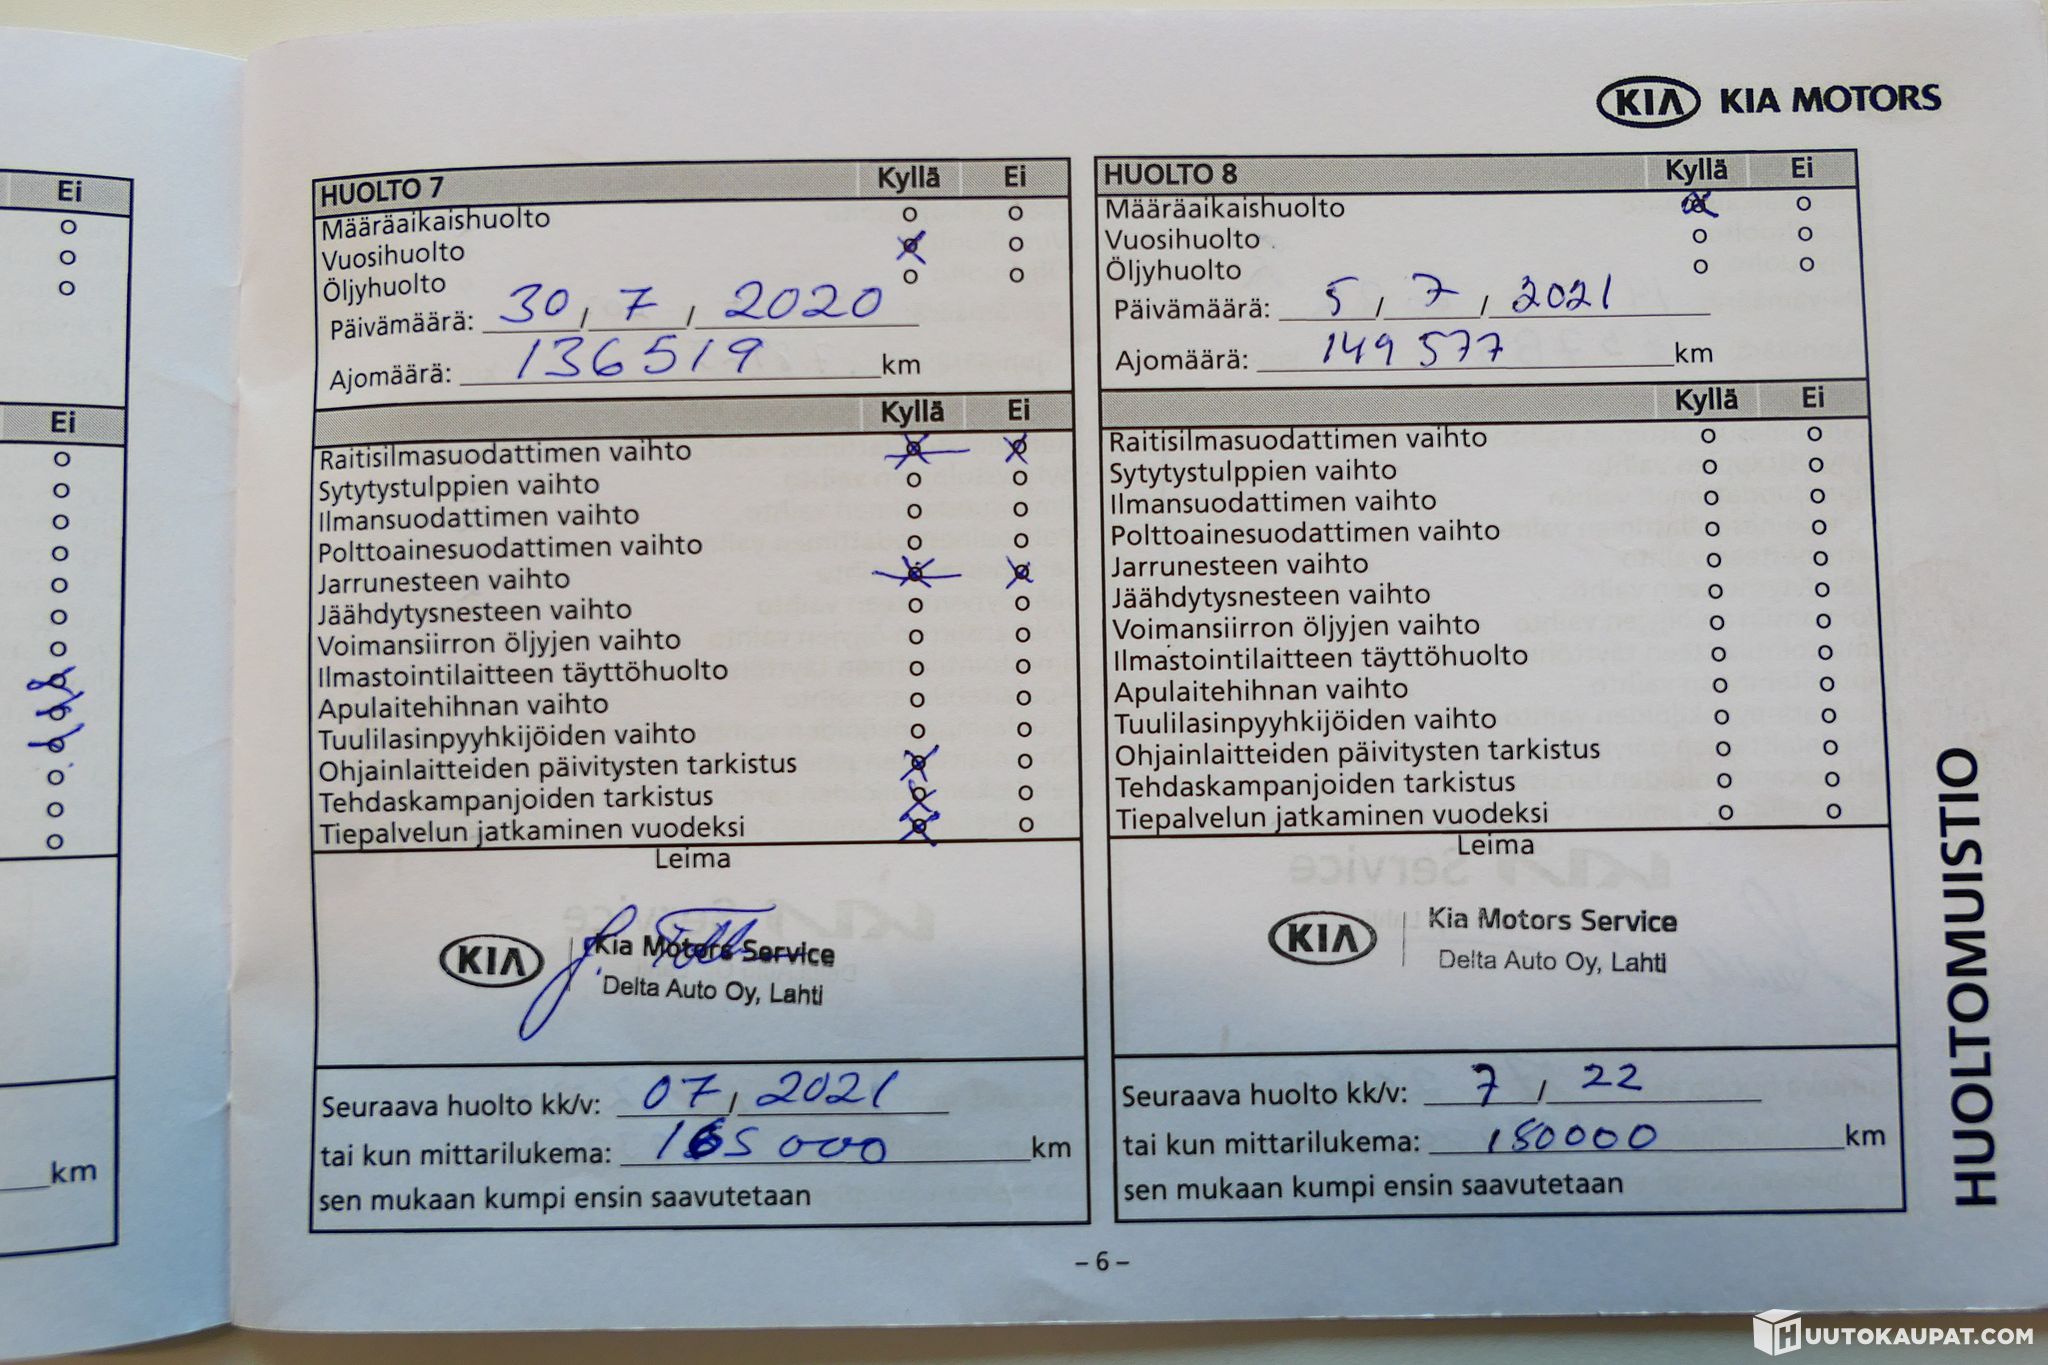 Ei
Ei
km
KIA KIA MOTORS
HUOLTO 7 Kyllä Ei
Määräaikaishuolto
Vuosihuolto
Öljyhuolto
Päivämäärä: 30 / 7 / 2020
Ajomäärä: 136519 km
Kyllä Ei
Raitisilmasuodattimen vaihto
Sytytystulppien vaihto
Ilmansuodattimen vaihto
Polttoainesuodattimen vaihto
Jarrunesteen vaihto
Jäähdytysnesteen vaihto
Voimansiirron öljyjen vaihto
Ilmastointilaitteen täyttöhuolto
Apulaitehihnan vaihto
Tuulilasinpyyhkijöiden vaihto
Ohjainlaitteiden päivitysten tarkistus
Tehdaskampanjoiden tarkistus
Tiepalvelun jatkaminen vuodeksi
Leima
KIA Kia Motors Service
Delta Auto Oy, Lahti
Seuraava huolto kk/v: 07 / 2021
tai kun mittarilukema: 165 000 km
sen mukaan kumpi ensin saavutetaan
HUOLTO 8 Kyllä Ei
Määräaikaishuolto
Vuosihuolto
Öljyhuolto
Päivämäärä: 5 / 7 / 2021
Ajomäärä: 149 577 km
Kyllä Ei
Raitisilmasuodattimen vaihto
Sytytystulppien vaihto
Ilmansuodattimen vaihto
Polttoainesuodattimen vaihto
Jarrunesteen vaihto
Jäähdytysnesteen vaihto
Voimansiirron öljyjen vaihto
Ilmastointilaitteen täyttöhuolto
Apulaitehihnan vaihto
Tuulilasinpyyhkijöiden vaihto
Ohjainlaitteiden päivitysten tarkistus
Tehdaskampanjoiden tarkistus
Tiepalvelun jatkaminen vuodeksi
Leima
KIA Kia Motors Service
Delta Auto Oy, Lahti
Seuraava huolto kk/v: 7 / 22
tai kun mittarilukema: 180000 km
sen mukaan kumpi ensin saavutetaan
HUOLTOMUISTIO
– 6 –
HUUTOKAUPAT.COM